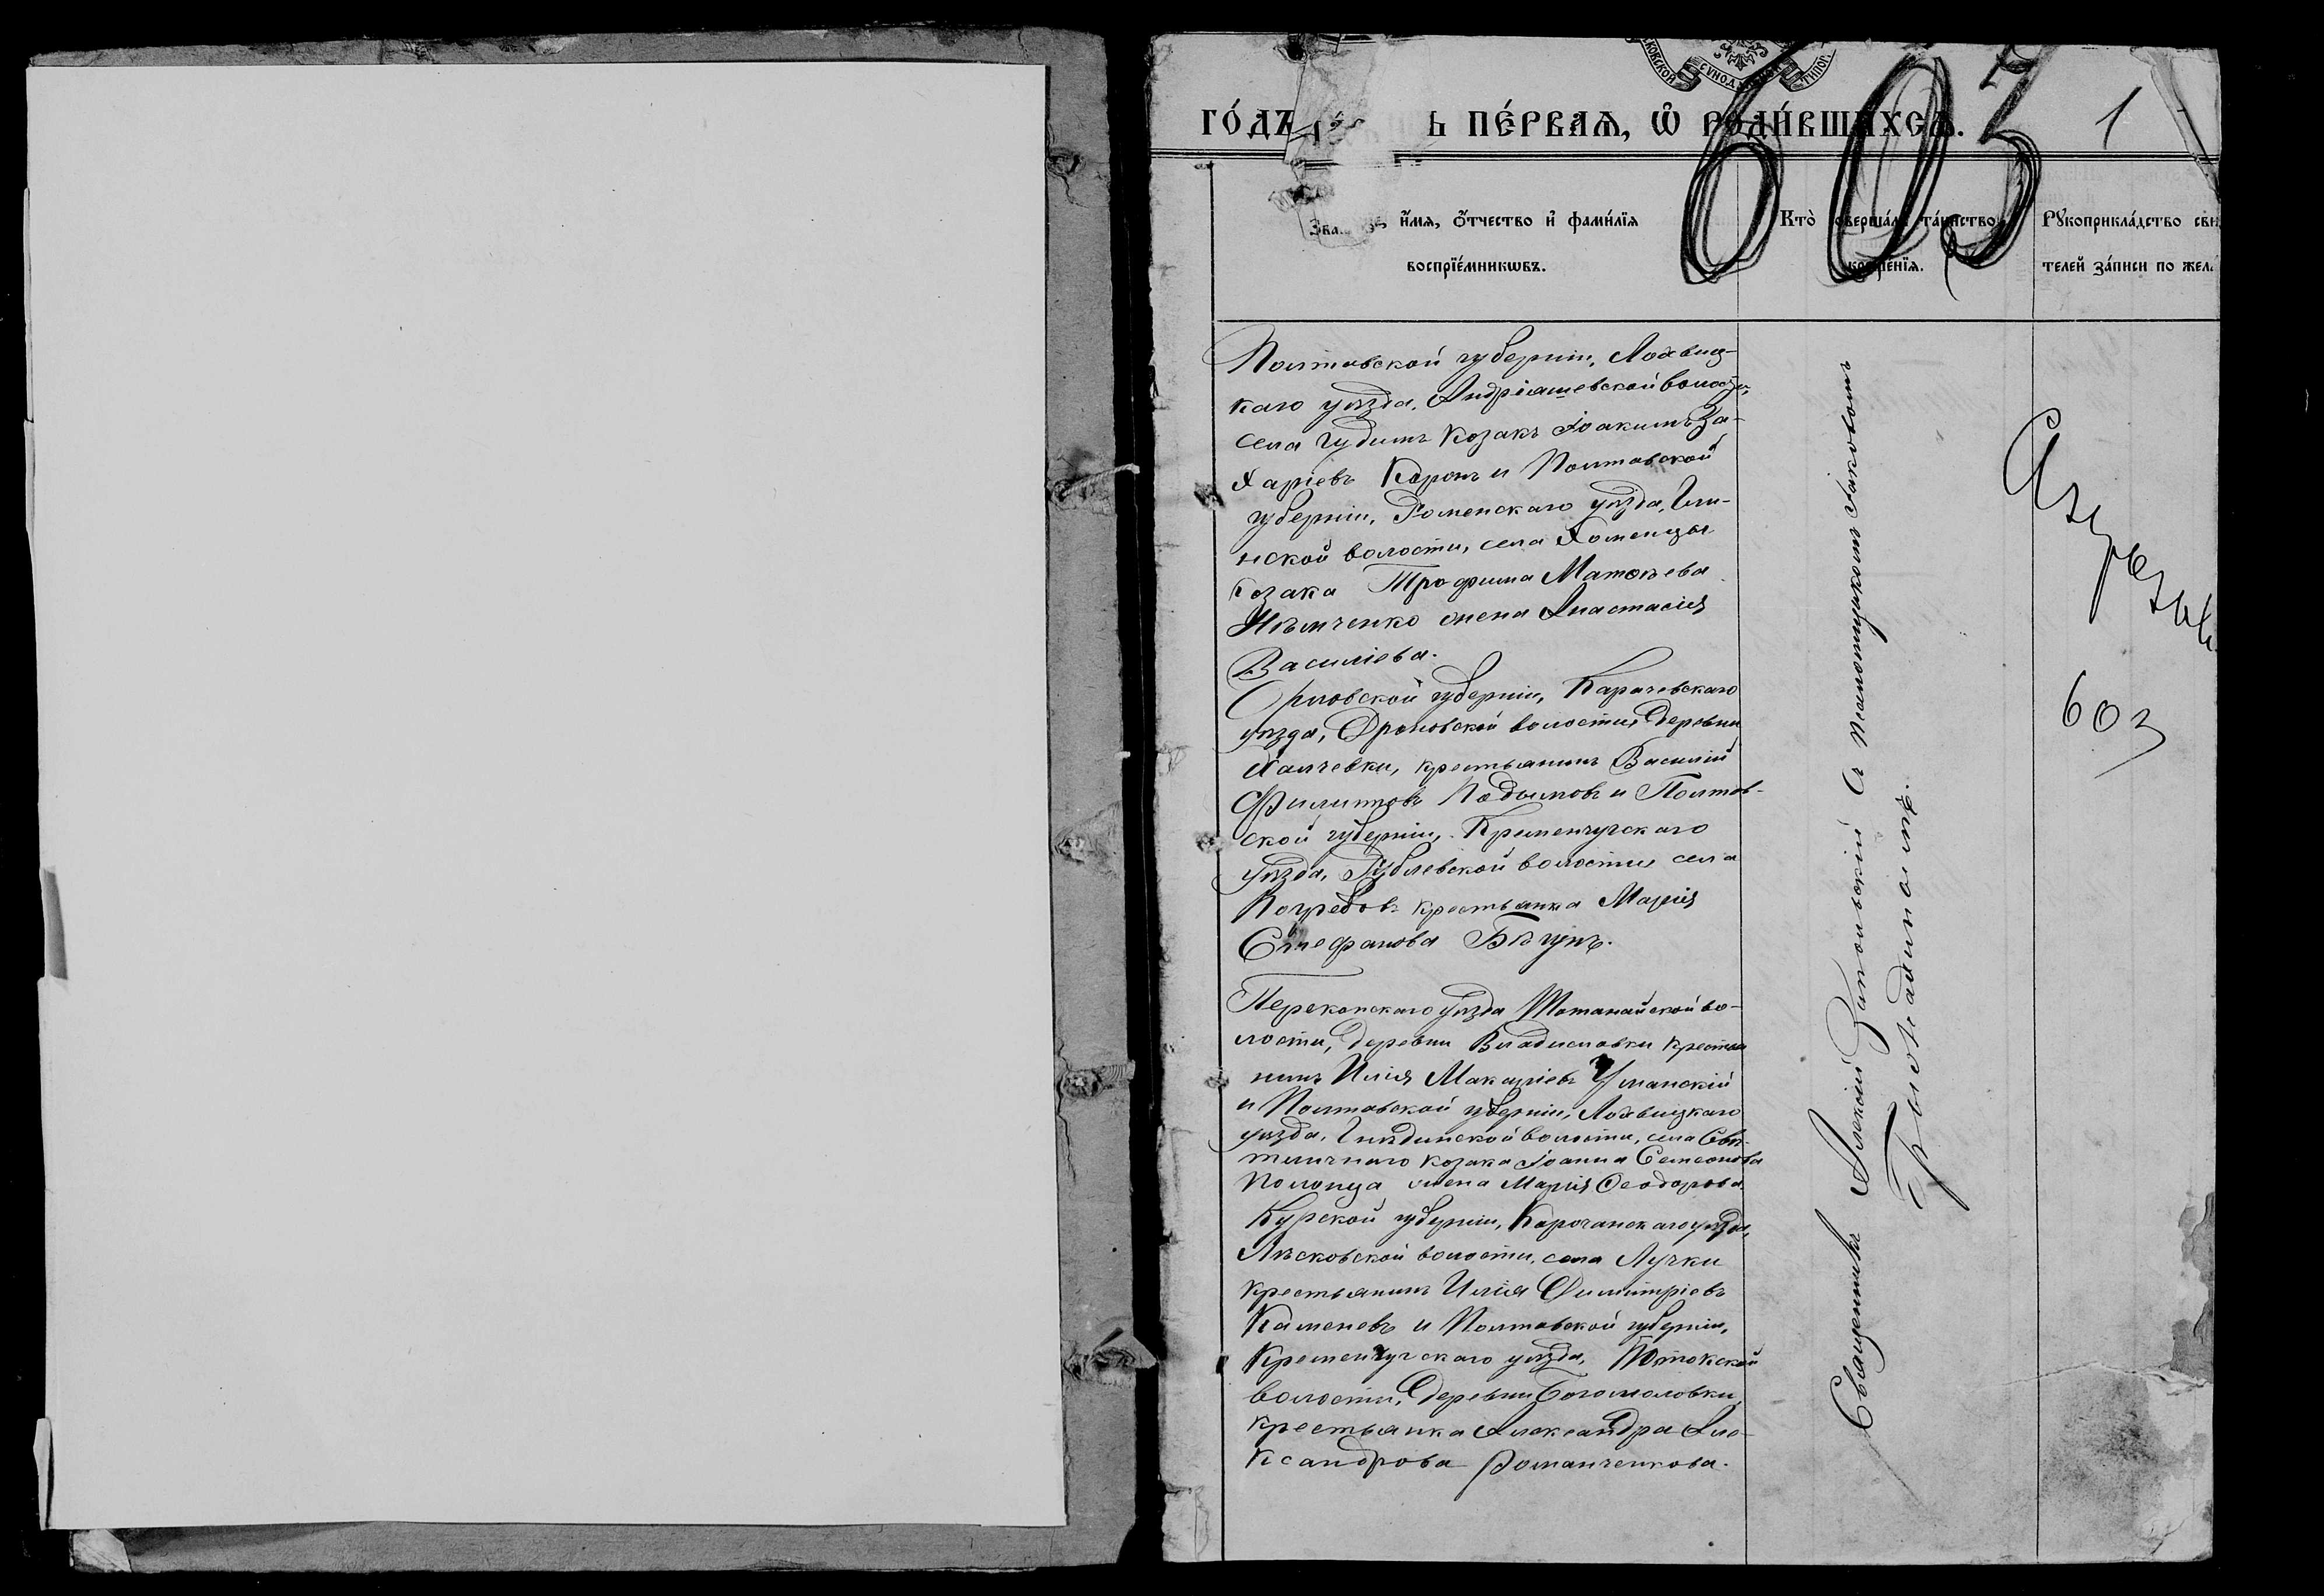 МОСКОВСКОЙ СѴНОДАЛЬНОЙ ТИПОГ.
ГО́ДЪ
Ь ПЕ́РВАѦ, Ѡ РОДИ́ВШИХСѦ.
603
1
Зва
и҆́мѧ, ѻ҆́тчество и҆ фами́лїѧ
воспрїе́мникѡвъ.
Кто̀ совершалъ та́инство
креще́нїѧ.
Рꙋкоприкла́дство сви
телей за́писи по жела
Полтавской губерніи, Лохвиц-
каго уѣзда, Андріяшевской волости,
села Гудимъ козакъ Іоакимъ За-
харіевъ Коронъ и Полтавской
губерніи, Роменскаго уѣзда, Гли-
нской волости, села Хоменцы
козака Трофима Матѳѣева
Нѣмченко жена Анастасія
Василіева.
Орловской губерніи, Карачевскаго
уѣзда, Дроновской волости, деревни
Халчевки, крестьянинъ Василій
Филипповъ Подымовъ и Полтав-
ской губерніи, Кременчугскаго
уѣзда, волости села
Погребовъ крестьянка Марія
Стефанова Бѣгунъ.
Перекопскаго уѣзда во-
лости, деревни Владиславки крестья
нинъ Илія Макаріевъ Уманскій
и Полтавской губерніи, Лохвицкаго
уѣзда, Гнѣдинской волости, села Свѣ-
тличнаго козака Іоанна Семеонова
Полонца жена Марія Ѳеодорова.
Курской губерніи, Корочанскаго уѣзда,
Лѣсковской волости, села Лучки
крестьянинъ Илія Димитріевъ
Каменевъ и Полтавской губерніи,
Кременчугскаго уѣзда, Потокской
волости, деревни Богомоловки
крестьянка Александра Але-
ксандрова Романченкова.
Священникъ Алексій Запольскій съ псаломщикомъ Іаковомъ
603